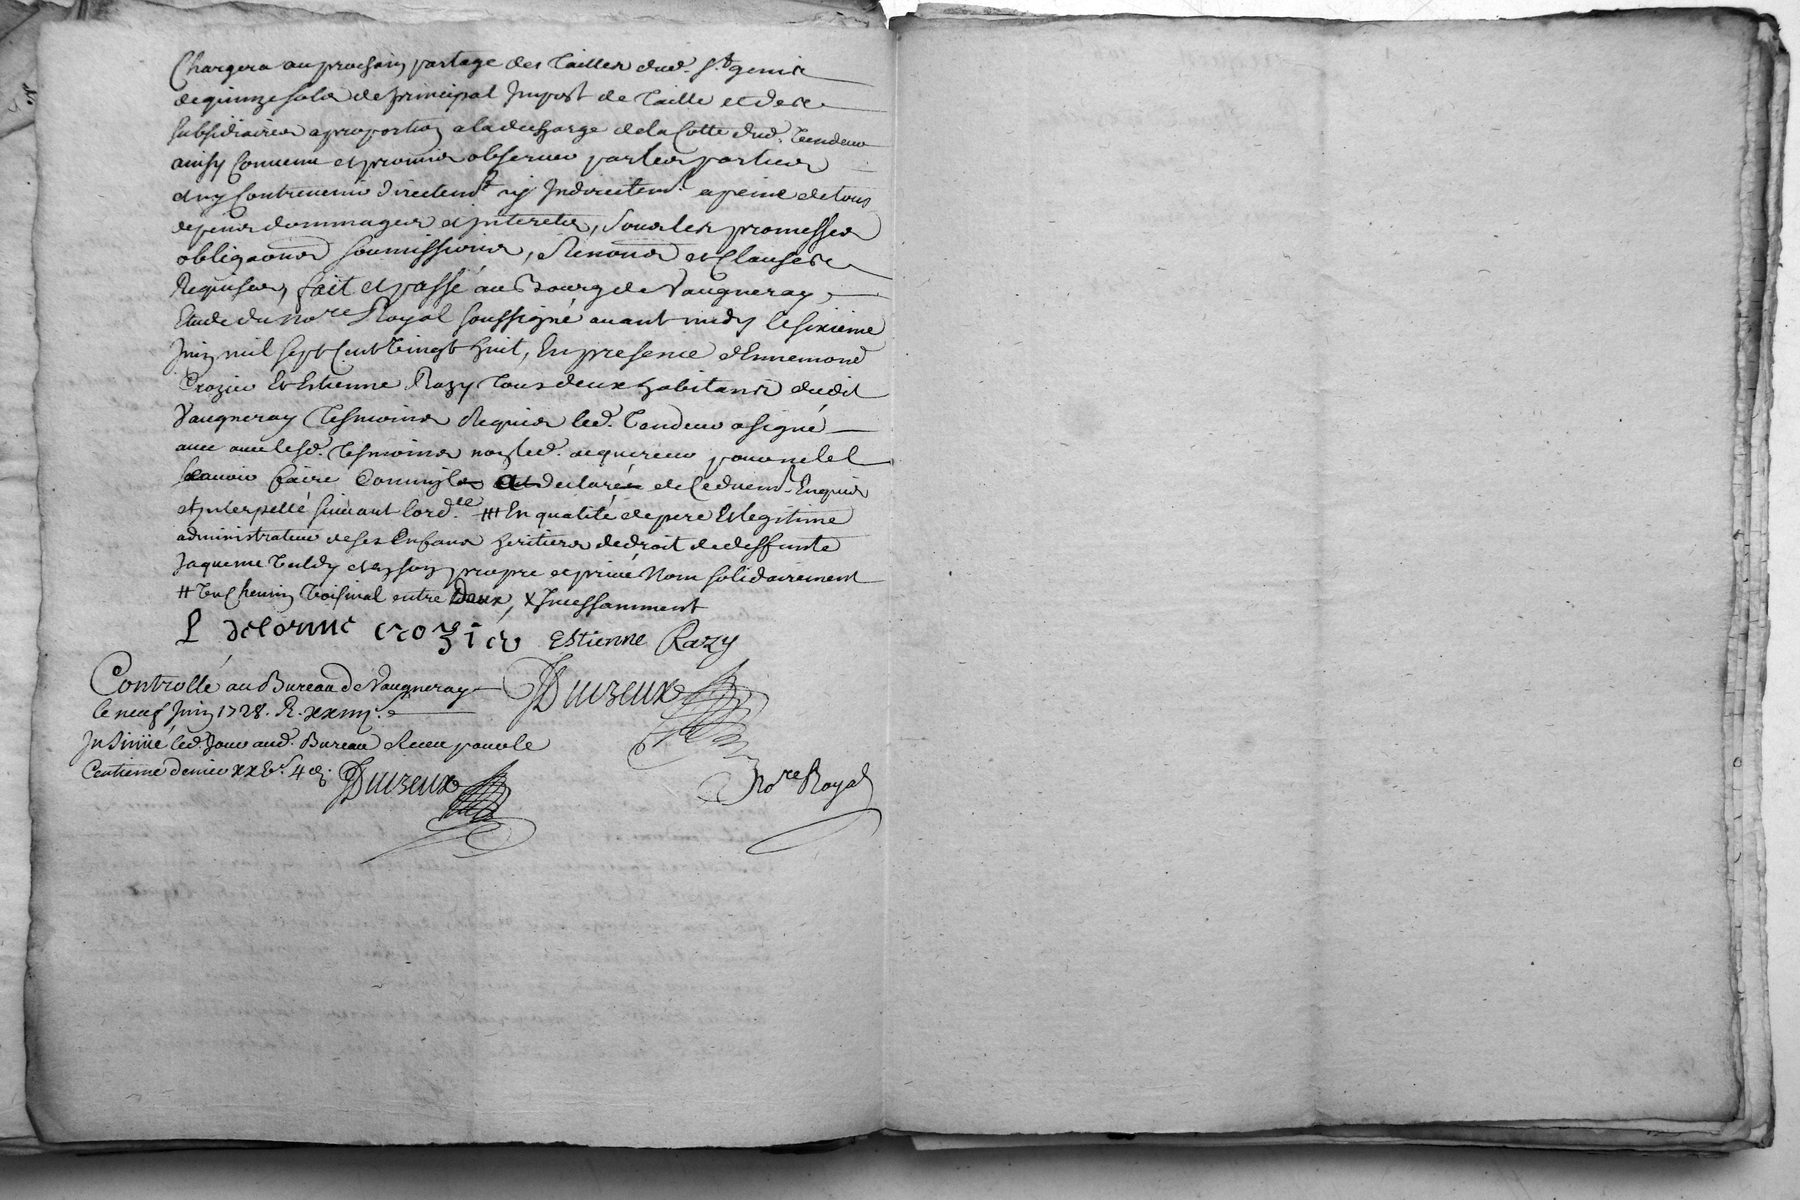 Chargera au prochain partage des Tailles dud. St. genis
de quinze sols de principal Impost de Taille et des
subsidiaires a proportion a la decharge de la Cotte dud. Vendeur
ainsy Convenu et promis observer par les parties
et ny Contrevenir directemt. ny Indirectemt. a peine de tous
depens dommages et Interets, sous les promesses
obligaons soumissions, Renons et Clauses
Requises, fait et passé au Bourg de Vaugneray
Etude du nore. Royal soussigné avant midy le sixieme
Juin mil sept Cent Vingt huit, En presence d'Ennemond
Crozier Et Estienne Razy Tous deux habitants dudit
Vaugneray Tesmoins Requis led. Vendeur a signé
avec lesd. Tesmoins non led. acquereur pour ne le
sçavoir faire Comme il a declaré de Ce duemt. Enquis
et Interpellé suivant lord.ce ## En qualité de pere Et legitime
administrateur de ses Enfans heritiers de droit de deffunte
Jaqueme et en son propre et privé Nom solidairement
# Un Chemin Voisinal entre Deux, x Incessamment
L delorme crozier Estienne Razy
Controllé au Bureau de Vaugneray
le neuf Juin 1728. R.
Duizeux
Insinué led. Jour aud. Bureau Receu pour le
Centieme denier
Duizeux
Nore Royal